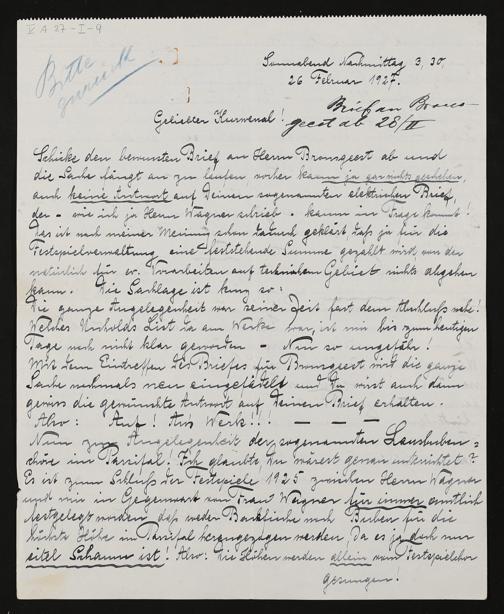 V A 27 - I - 9
Bitte
zurück
Sonnabend Nachmittag 3,30.
26 Februar 1927.
Brief an Brons-
geest ab 28/II
Geliebter Kurwenal!
Schicke den bewussten Brief an Herrn Bronsgeest ab und
die Sache fängt an zu laufen, vorher kann ja gar nichts geschehen,
auch keine Antwort auf Deinen sogenannten elektrischen Brief,
der - wie ich ja Herrn Wagner schrieb - kaum in Frage kommt!
Das ist nach meiner Meinung schon dadurch geklärt daß ja für die
Festspielverwaltung eine feststehende Summe gezahlt wird, von der
natürlich für ev. Vorarbeiten auf technischem Gebiet nichts abgehen
kann. Die Sachlage ist kurz so:
Die ganze Angelegenheit war seiner Zeit fast dem Abschluß nahe!
Welches Unholds List da am Werke war, ist mir bis zum heutigen
Tage noch nicht klar geworden - Nun so ungefähr!
Mit dem Eintreffen des Briefes für Bronsgeest wird die ganze
Sache nochmals neu eingefädelt und Du wirst auch dann
gewiss die gewünschte Antwort auf Deinen Brief erhalten.
Also: Auf! Ans Werk!!! - - -
Nun zur Angelegenheit der sogenannten Lausbuben=
chöre im Parsifal. Ich glaubte, Du wärest genau unterrichtet?
Es ist zum Schluß der Festspiele 1925 zwischen Herrn Wagner
und mir in Gegenwart von Frau Wagner für immer amtlich
festgelegt worden, daß weder Backfische noch Buben für die
höchste Höhe in Parsifal herangezogen werden, da es ja doch nur
eitel Schaum ist! Also: die Höhen werden allein vom Festspielchor
gesungen!